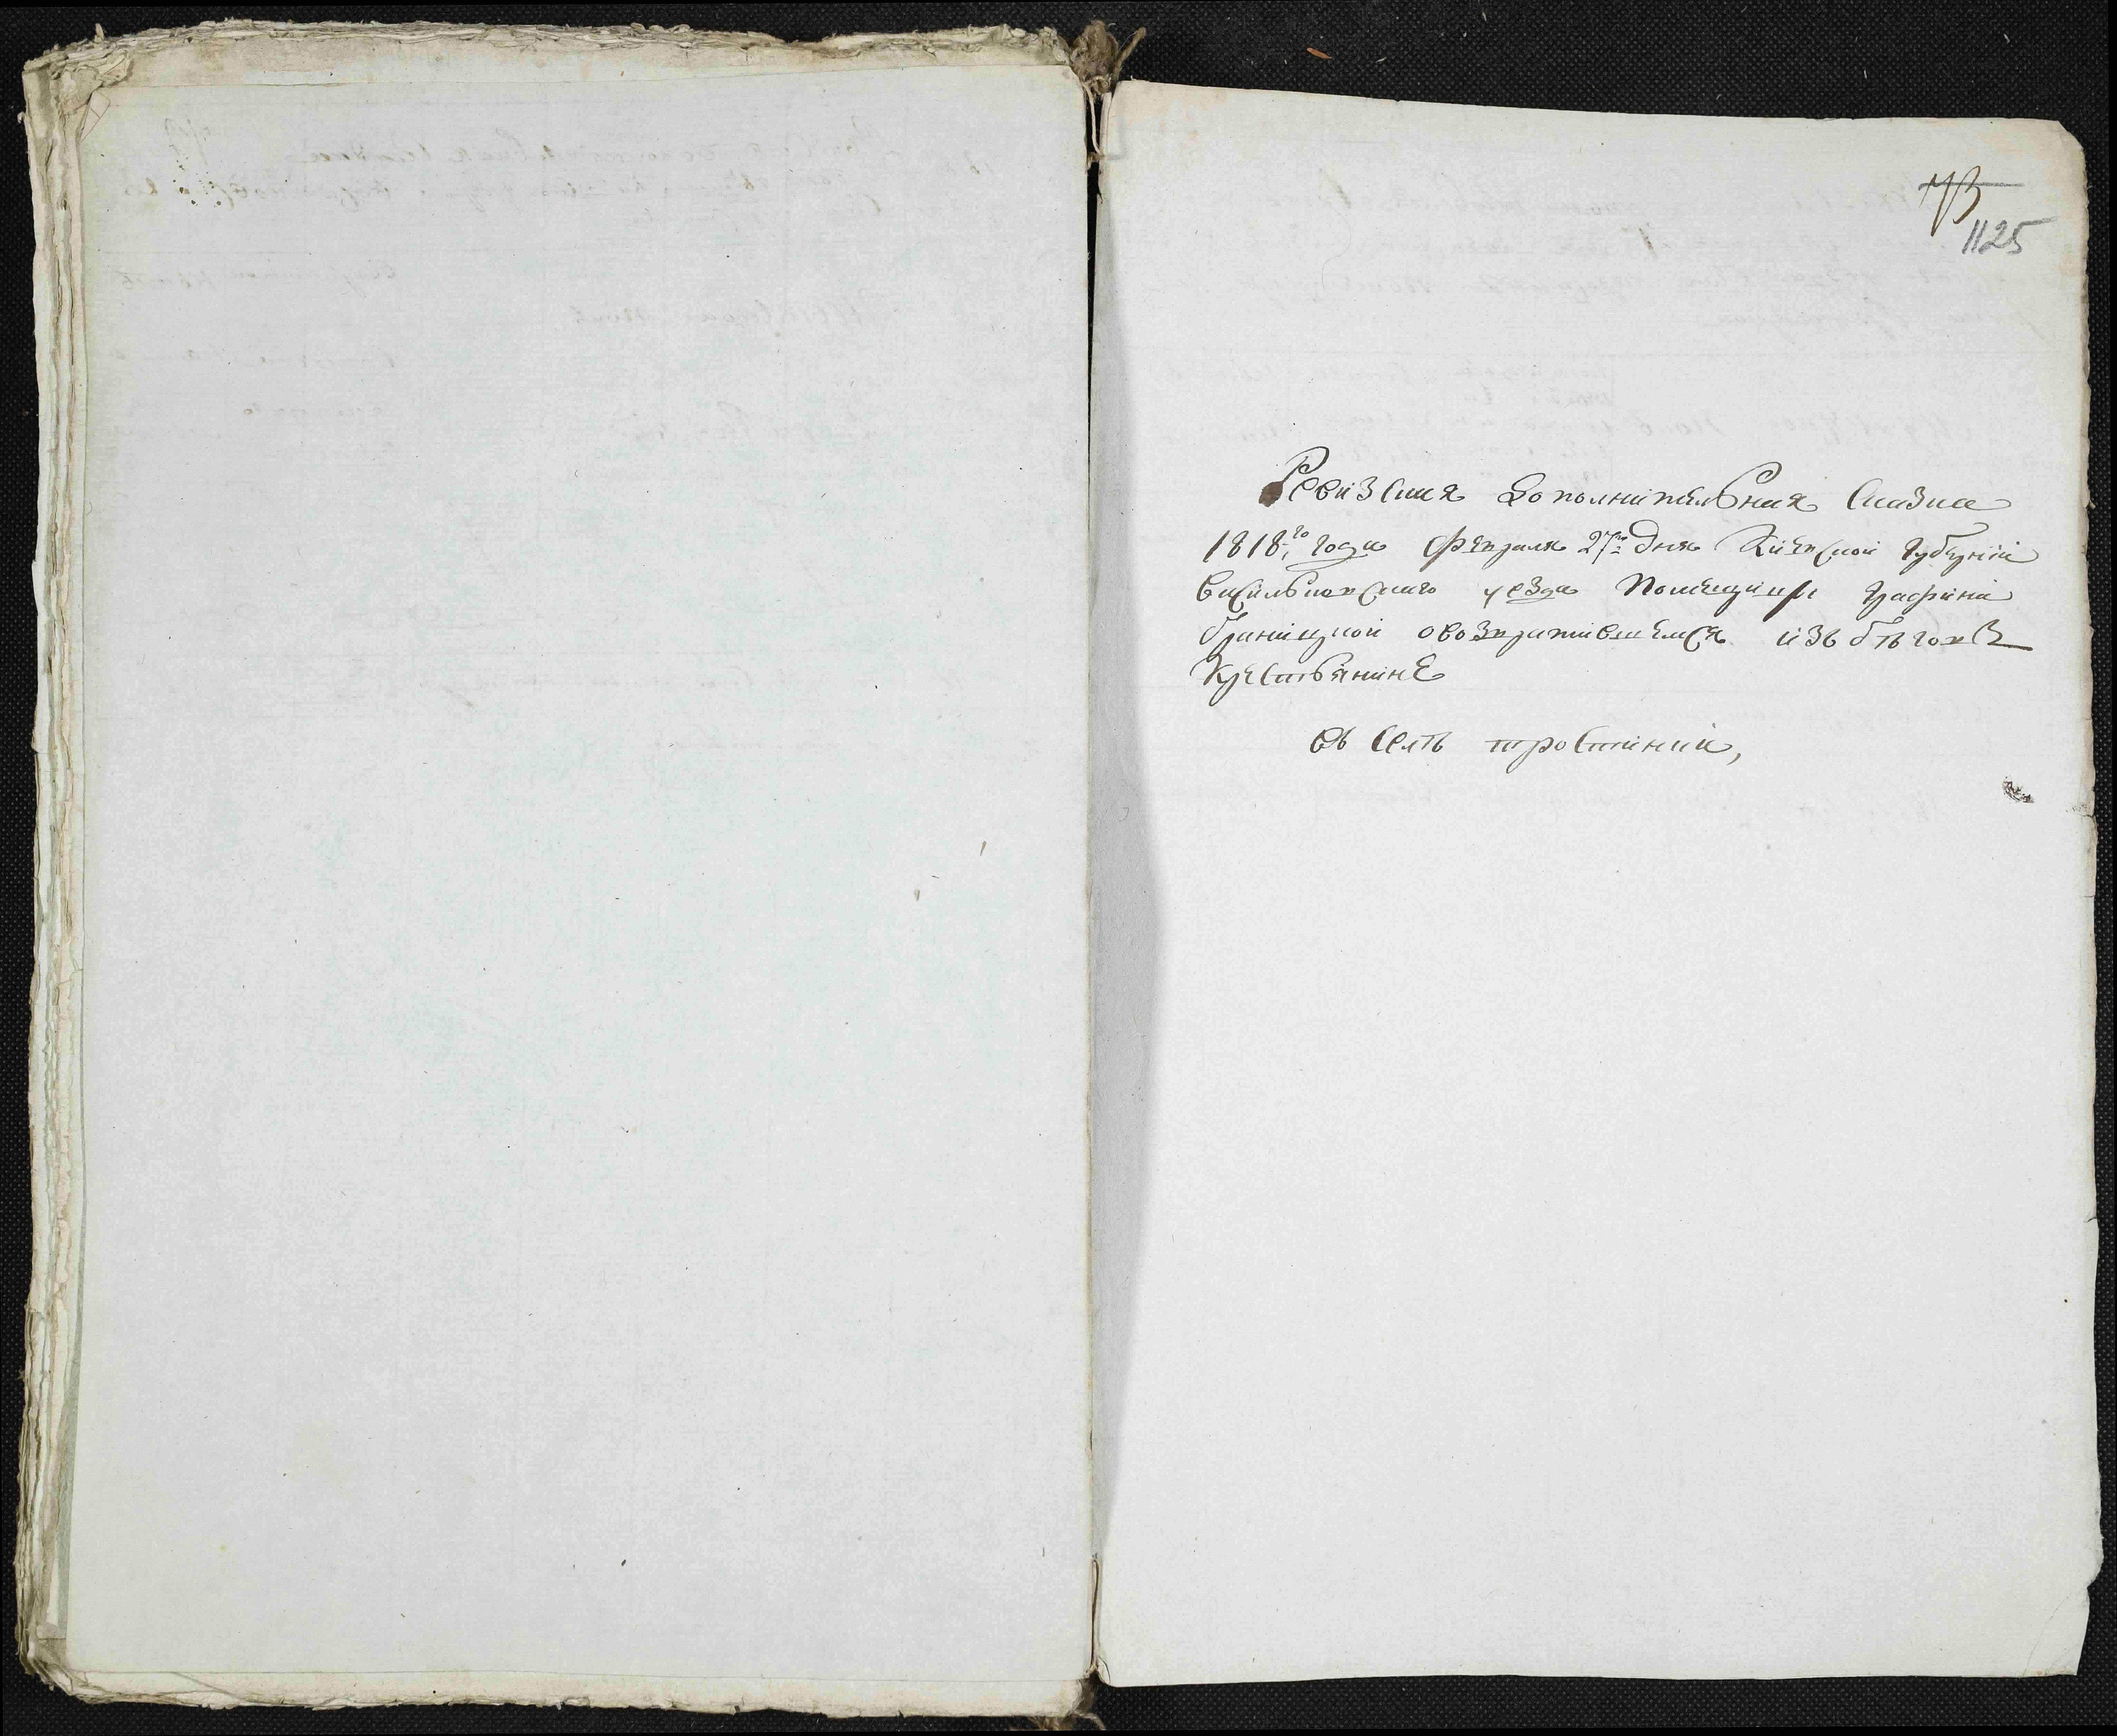 1125
Ревизская дополнительная сказка
1818го года февраля 27го дня Киевской губернии
васильковского уезда Помещицы графини
браницкой овозвратившемся изъ бѣговъ
Крестьянине
въ селѣ тростинки,